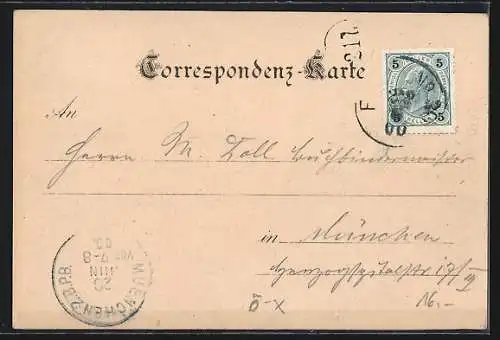 Correspondenz-Karte
5 5
5 5
An
Herrn M. Doll Buchbindermeister
in München
Herzogspitalstr 17/III
MUENCHEN 2.B.P.B.
20
JUN
VOR 7-8
00.
Ö-X
16.-